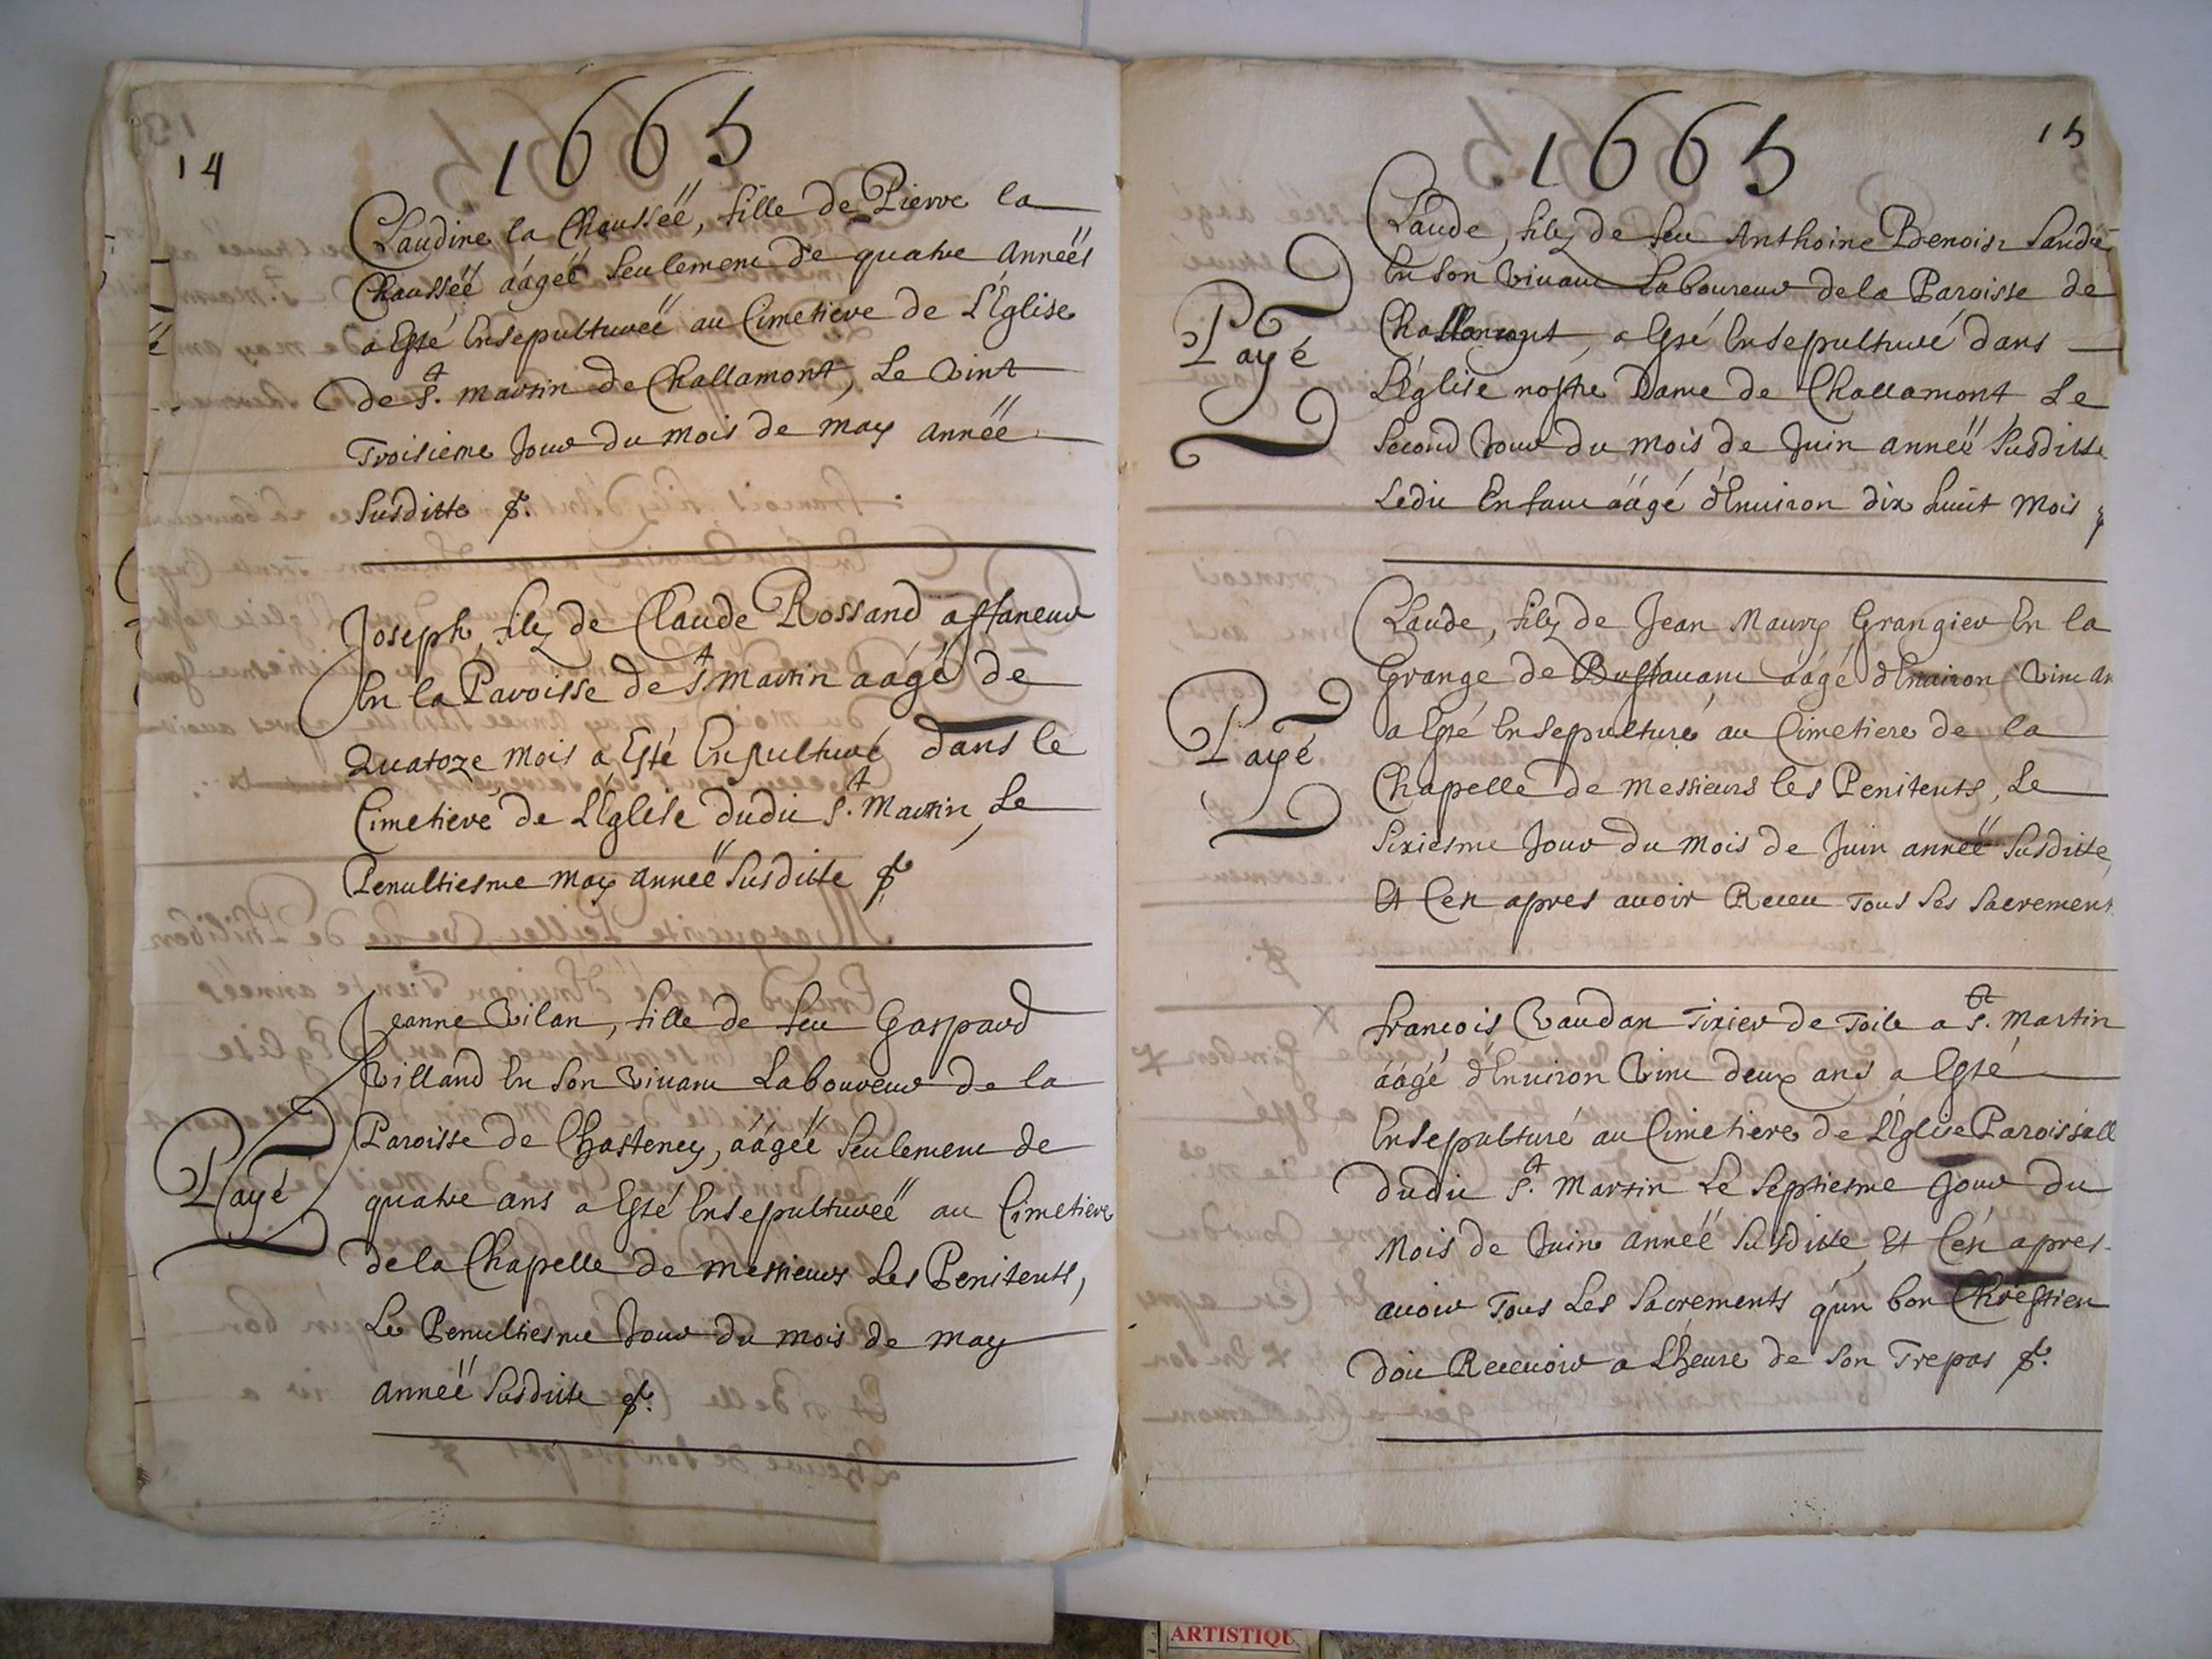 14
1665
Claudine la Chausséë, fille de Pierre la
Chausséë áágéë seulement de quatre annéës
a Esté Ensepulturéë au Cimetiere de L'Église
de St. Martin de Challamont, Le Vint
Troisieme Jour du mois de may annéë
susditte
Joseph, filz de Claude Rossand affaneur
En la Paroisse de St. Martin aágé de
Quatoze mois a Esté Enpulturé dans le
Cimetiere de L'Eglise dudit St. Martin, Le
Penultiesme may annéë susditte
Payé
Jeanne Vilan, fille de feu Gaspard
Villand En son Vivant Laboureur de la
Paroisse de Chasteney, áágéë seulement de
quatre ans a Esté Ensepulturéë au Cimetiere
de la Chapelle de messieurs Les Penitents,
Le Penultiesme Jour du mois de may
annéë susditte
15
1665
Payé
Claude, filz de feu Anthoine Benoist
En son Vivant Laboureur de la Paroisse de
Challamont, a Esté Ensepulturé dans
L'église nostre Dame de Challamont Le
second Jour du mois de Juin annéë susditte
Ledit Enfant áágé d'Environ dix huit mois
Payé
Claude, filz de Jean Maury Grangier En la
Grange de áágé d'Environ Vint an
a Esté Ensepulturé au Cimetiere de la
Chapelle de messieurs les Penitents, Le
sixiesme Jour du mois de Juin annéë susditte,
Et C'est apres avoir Receu Tous ses sacrement
francois Vaudan Tixier de Toile a St. Martin
áágé d'Environ Vint deux ans a Esté
Ensepulturé au Cimetiere de L'Eglise Paroissall
dudit St. Martin Le septiesme Jour du
Mois de Juin annéë susditte, Et C'est apres
avoir Tous Les sacrements qu'un bon Chrestien
doit Recevoir a L'heure de son Trepas
ARTISTIQU